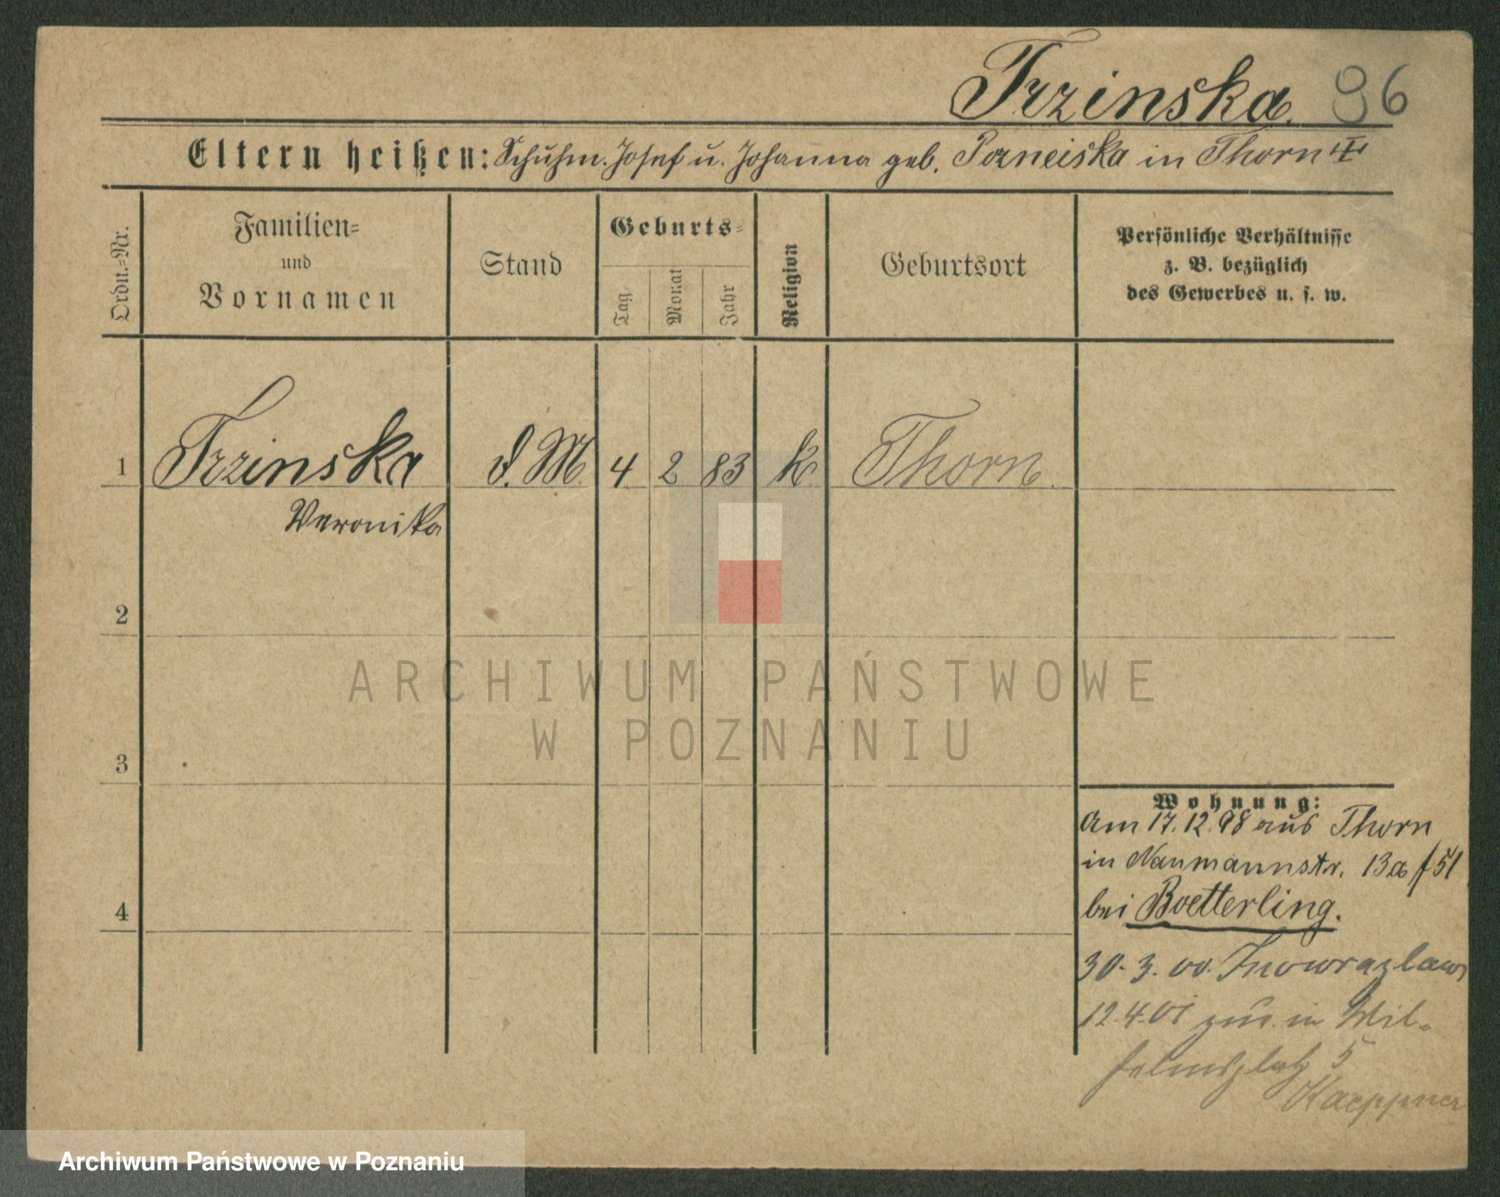 Trzinska. 96
Eltern heißen: Schuhm. Josef u. Johanna geb. in Thorn
Ordn.=Nr.
Familien=
und
Vornamen
Stand
Geburts=
Tag
Monat
Jahr
Religion
Geburtsort
Persönliche Verhältnisse
z. B. bezüglich
des Gewerbes u. s. w.
1 Trzinska D. M. 4 2 83 k Thorn.
Veronika
2
3
4
Wohnung:
Am 17.12.98 aus Thorn
in Naumannstr. 13a f 51
bei Boetterling.
30.3.00. Inowrazlaw
12.4.01 zur. in Wil-
helmsplatz 5
Kaeppner
ARCHIWUM PAŃSTWOWE
W POZNANIU
Archiwum Państwowe w Poznaniu